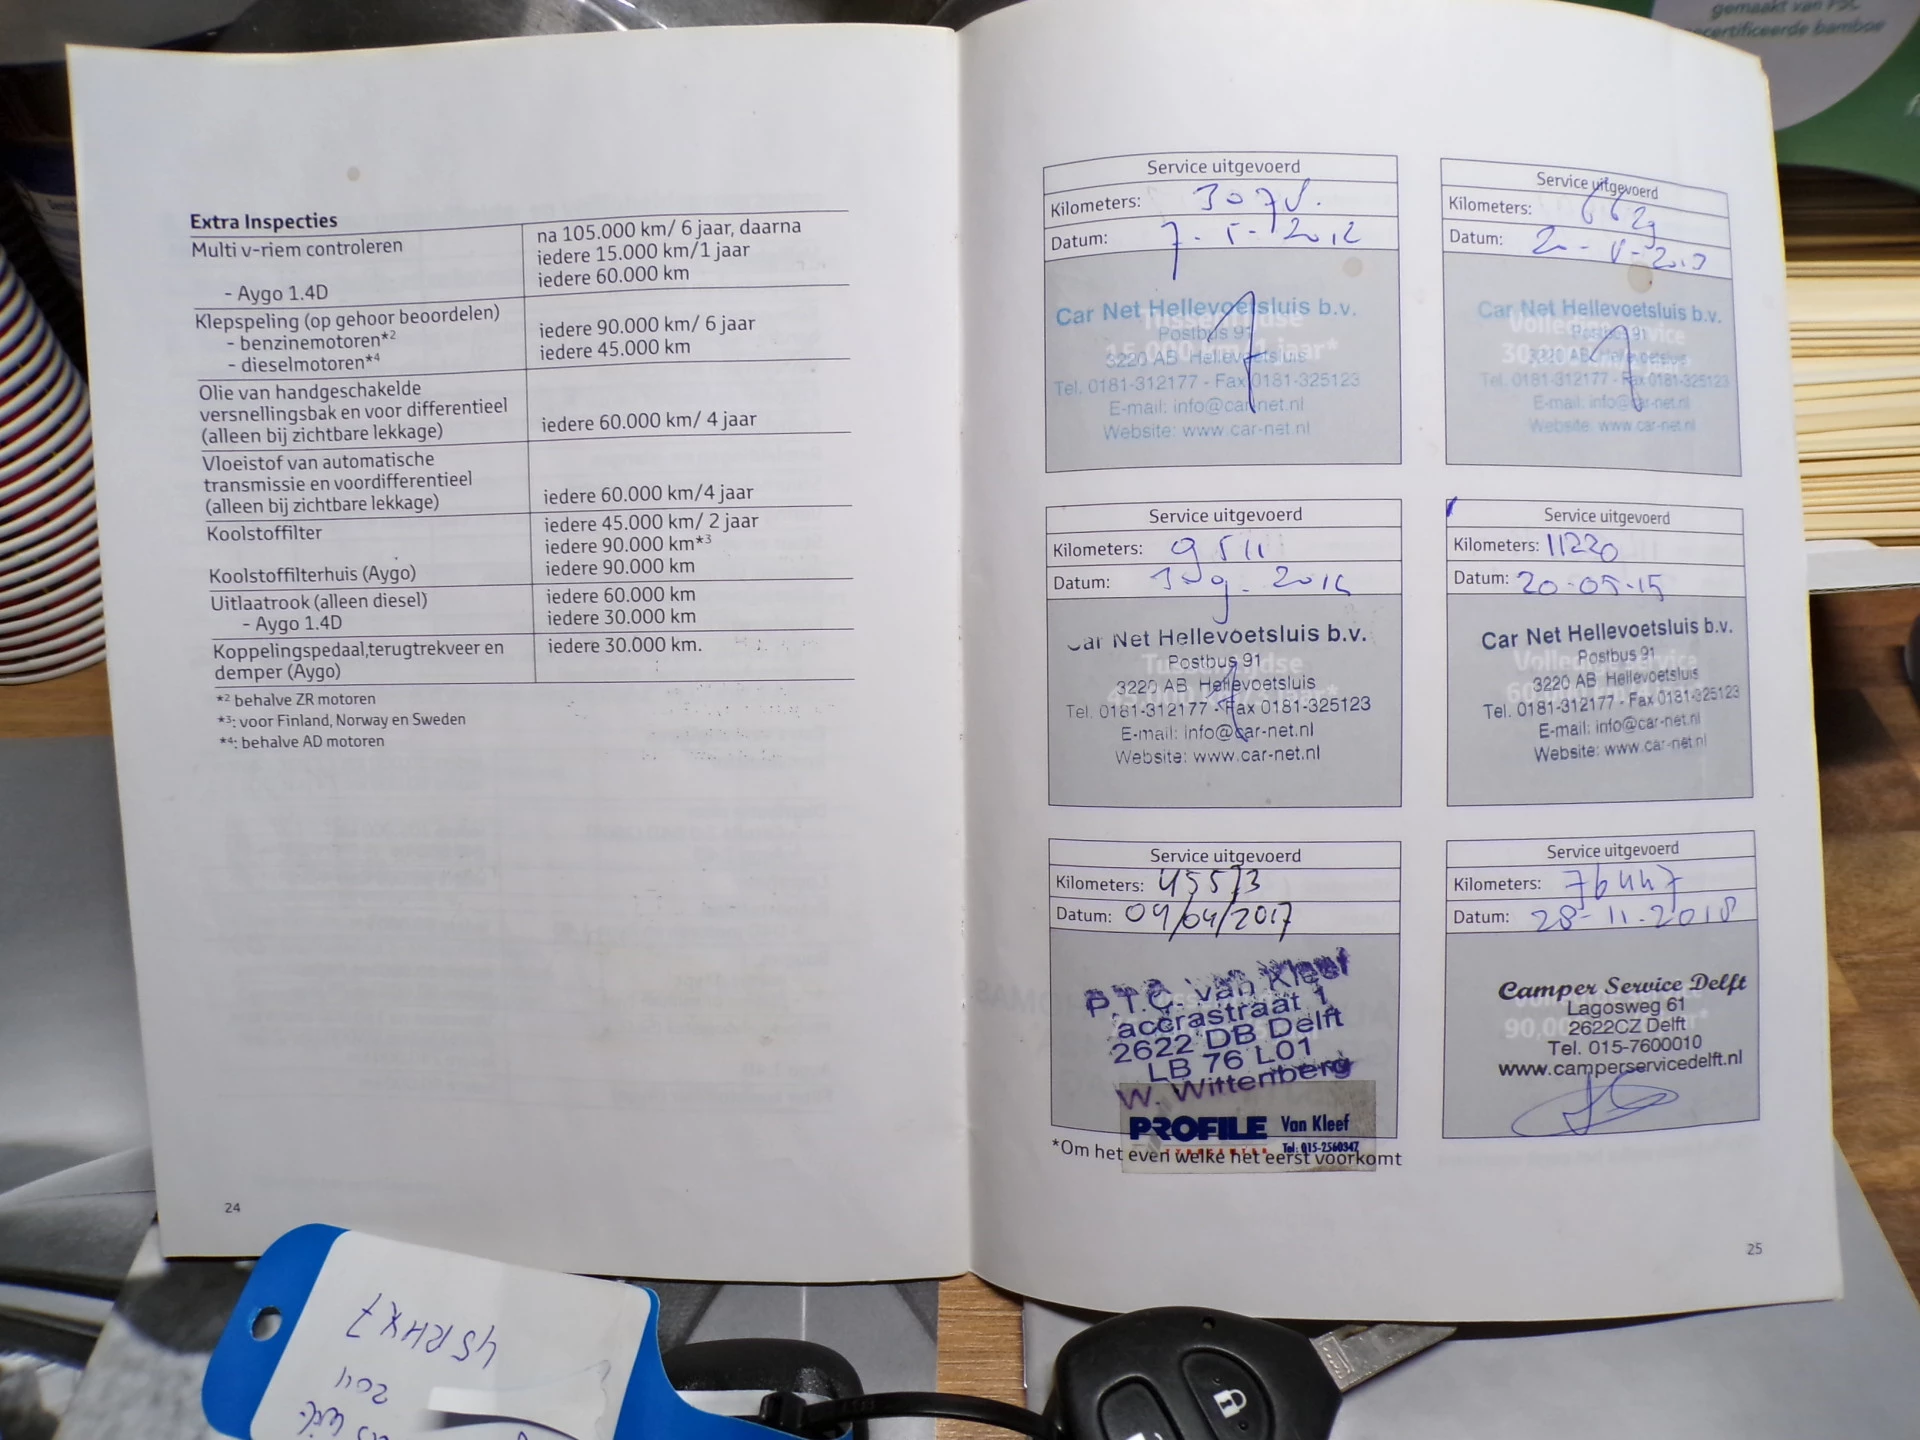 gemaakt van FSC
gecertificeerde bamboe
Extra Inspecties
Multi v-riem controleren
na 105.000 km/ 6 jaar, daarna
iedere 15.000 km/1 jaar
- Aygo 1.4D
iedere 60.000 km
Klepspeling (op gehoor beoordelen)
- benzinemotoren*2
iedere 90.000 km/ 6 jaar
- dieselmotoren*4
iedere 45.000 km
Olie van handgeschakelde
versnellingsbak en voor differentieel
(alleen bij zichtbare lekkage)
iedere 60.000 km/ 4 jaar
Vloeistof van automatische
transmissie en voordifferentieel
(alleen bij zichtbare lekkage)
iedere 60.000 km/4 jaar
Koolstoffilter
iedere 45.000 km/ 2 jaar
iedere 90.000 km*3
Koolstoffilterhuis (Aygo)
iedere 90.000 km
Uitlaatrook (alleen diesel)
iedere 60.000 km
- Aygo 1.4D
iedere 30.000 km
Koppelingspedaal,terugtrekveer en
demper (Aygo)
iedere 30.000 km.
*2 behalve ZR motoren
*3: voor Finland, Norway en Sweden
*4: behalve AD motoren
24
Service uitgevoerd
Kilometers:
Datum: 7-5-2012
Car Net Hellevoetsluis b.v.
Tussentijdse
Postbus 91
15.000 km/1 jaar*
3220 AB Hellevoetsluis
Tel. 0181-312177 - Fax 0181-325123
E-mail: info@car-net.nl
Website: www.car-net.nl
Service uitgevoerd
Kilometers: 6629
Datum:
Car Net Hellevoetsluis b.v.
Volledige service
Postbus 91
3220 AB Hellevoetsluis
Tel. 0181-312177 - Fax 0181-325123
E-mail: info@car-net.nl
Website: www.car-net.nl
Service uitgevoerd
Kilometers: 9511
Datum:
Car Net Hellevoetsluis b.v.
Postbus 91
Tussentijdse
3220 AB Hellevoetsluis
Tel. 0181-312177 - Fax 0181-325123
E-mail: info@car-net.nl
Website: www.car-net.nl
Service uitgevoerd
Kilometers: 11220
Datum: 20-05-15
Car Net Hellevoetsluis b.v.
Postbus 91
Volledige service
3220 AB Hellevoetsluis
Tel. 0181-312177 - Fax 0181-325123
E-mail: info@car-net.nl
Website: www.car-net.nl
Service uitgevoerd
Kilometers: 45573
Datum: 04/04/2017
P.T.C. van Kleef
accrastraat 1
2622 DB Delft
LB 76 L01
W. Wittenberg
PROFILE Van Kleef
Tel: 015-2560347
*Om het even welke het eerst voorkomt
Service uitgevoerd
Kilometers: 76447
Datum: 28-11-2018
Camper Service Delft
Lagosweg 61
2622CZ Delft
Tel. 015-7600010
www.camperservicedelft.nl
25
45RHX7
2011